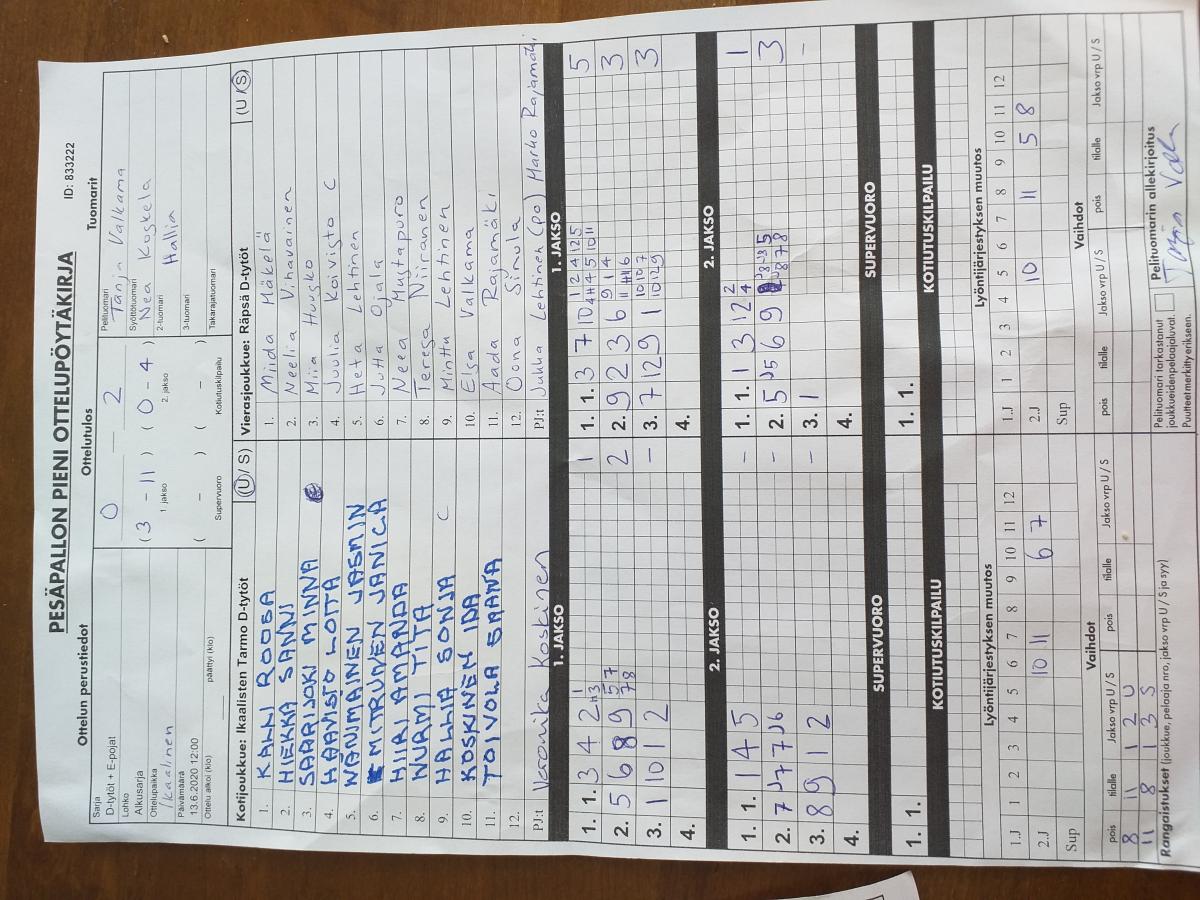 PESÄPALLON PIENI OTTELUPÖYTÄKIRJA
ID: 833222
Ottelun perustiedot
Ottelutulos
Tuomarit
Sarja
D-tytöt + E-pojat
Lohko
Alkusarja
Ottelupaikka
Ikaalinen
Päivämäärä
13.6.2020 12:00
Ottelu alkoi (klo)
päättyi (klo)
0 2
( 3 - 11 ) ( 0 - 4 )
1. jakso 2. jakso
( - ) ( - )
Supervuoro Kotiutuskilpailu
Pelituomari
Tanja Valkama
Syöttötuomari
Nea Koskela
2-tuomari
Hallia
3-tuomari
Takarajatuomari
Kotijoukkue: Ikaalisten Tarmo D-tytöt (U / S)
1. KALLI ROOSA
2. HIEKKA SANNI
3. SAARIJOKI MINNA
4. HAAVISTO LOITA
5. JASMIN
6. JANICA
7. HIIRI AMANDA
8. NURMI TIITA
9. HALLIA SONJA C
10. KOSKINEN IDA
11. TOIVOLA SAANA
12.
PJ:t Veronika Koskinen
Vierasjoukkue: Räpsä D-tytöt (U / S)
1. Miida Mäkelä
2. Neelia Vihavainen
3. Miia Huusko
4. Juulia Koivisto C
5. Heta Lehtinen
6. Jutta Ojala
7. Neea Mustapuro
8. Teresa Niiranen
9. Minttu Lehtinen
10. Elsa Valkama
11. Aada Rajamäki
12. Oona Simula
PJ:t Jukka Lehtinen (po) Marko Rajamäki
1. JAKSO
1. 1. 3 4 2 1
2. 5 6 8 9 2
3. 1 10 1 2 -
4.
1. JAKSO
1. 1. 3 7 10 5
2. 9 2 3 6 3
3. 7 12 9 1 3
4.
2. JAKSO
1. 1. 1 4 5 -
2. 7 J7 7 J6 -
3. 8 9 1 2 -
4.
2. JAKSO
1. 1. 1 3 12 1
2. 5 J5 6 9 3
3. 1 -
4.
SUPERVUORO
1. 1.
SUPERVUORO
1. 1.
KOTIUTUSKILPAILU
KOTIUTUSKILPAILU
Lyöntijärjestyksen muutos
1.J 1 2 3 4 5 6 7 8 9 10 11 12
2.J 10 11 6 7
Sup
Lyöntijärjestyksen muutos
1.J 1 2 3 4 5 6 7 8 9 10 11 12
2.J 10 11 5 8
Sup
Vaihdot
pois tilalle Jakso vrp U / S pois tilalle Jakso vrp U / S
8 11 1 2 U
11 8 1 3 S
Vaihdot
pois tilalle Jakso vrp U / S pois tilalle Jakso vrp U / S
Rangaistukset (joukkue, pelaaja nro, jakso vrp U / S ja syy)
Pelituomari tarkastanut
joukkueiden pelaajaluvat.
Puutteet merkitty erikseen.
Pelituomarin allekirjoitus